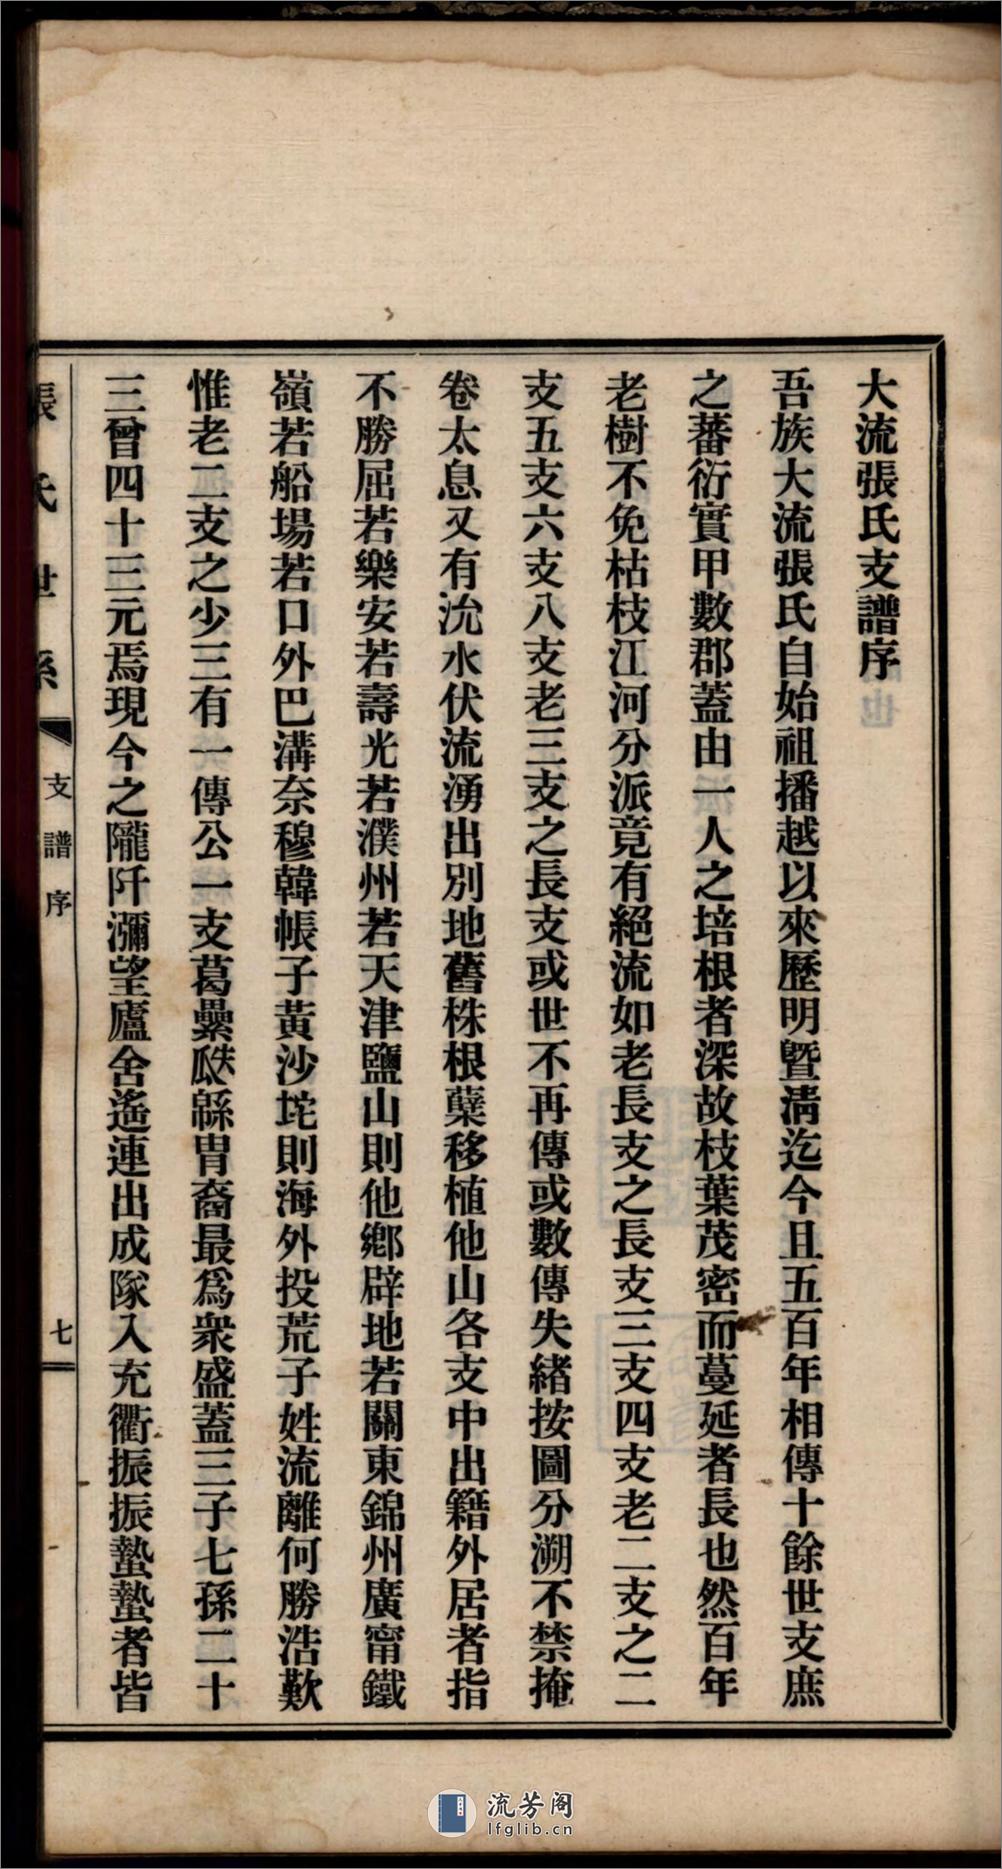 大流張氏支譜序
吾族大流張氏自始祖播越以來歷明暨淸迄今且五百年相傳十餘世支庶
之蕃衍實甲數郡蓋由一人之培根者深故枝葉茂密而蔓延者長也然百年
老樹不免枯枝江河分派竟有絕流如老長支之長支三支四支老二支之二
支五支六支八支老三支之長支或世不再傳或數傳失緒按圖分溯不禁掩
卷太息又有沇水伏流湧出別地舊株根蘖移植他山各支中出籍外居者指
不勝屈若樂安若壽光若濮州若天津鹽山則他鄉辟地若關東錦州廣甯鐵
嶺若船場若口外巴溝奈穆韓帳子黃沙坨則海外投荒子姓流離何勝浩歎
惟老二支之少三有一傳公一支葛纍瓞緜冑裔最爲衆盛蓋三子七孫二十
三曾四十三元焉現今之隴阡瀰望廬舍遙連出成隊入充衢振振蟄蟄者皆
張氏世系
支譜序
七
流芳阁
lfglib.cn